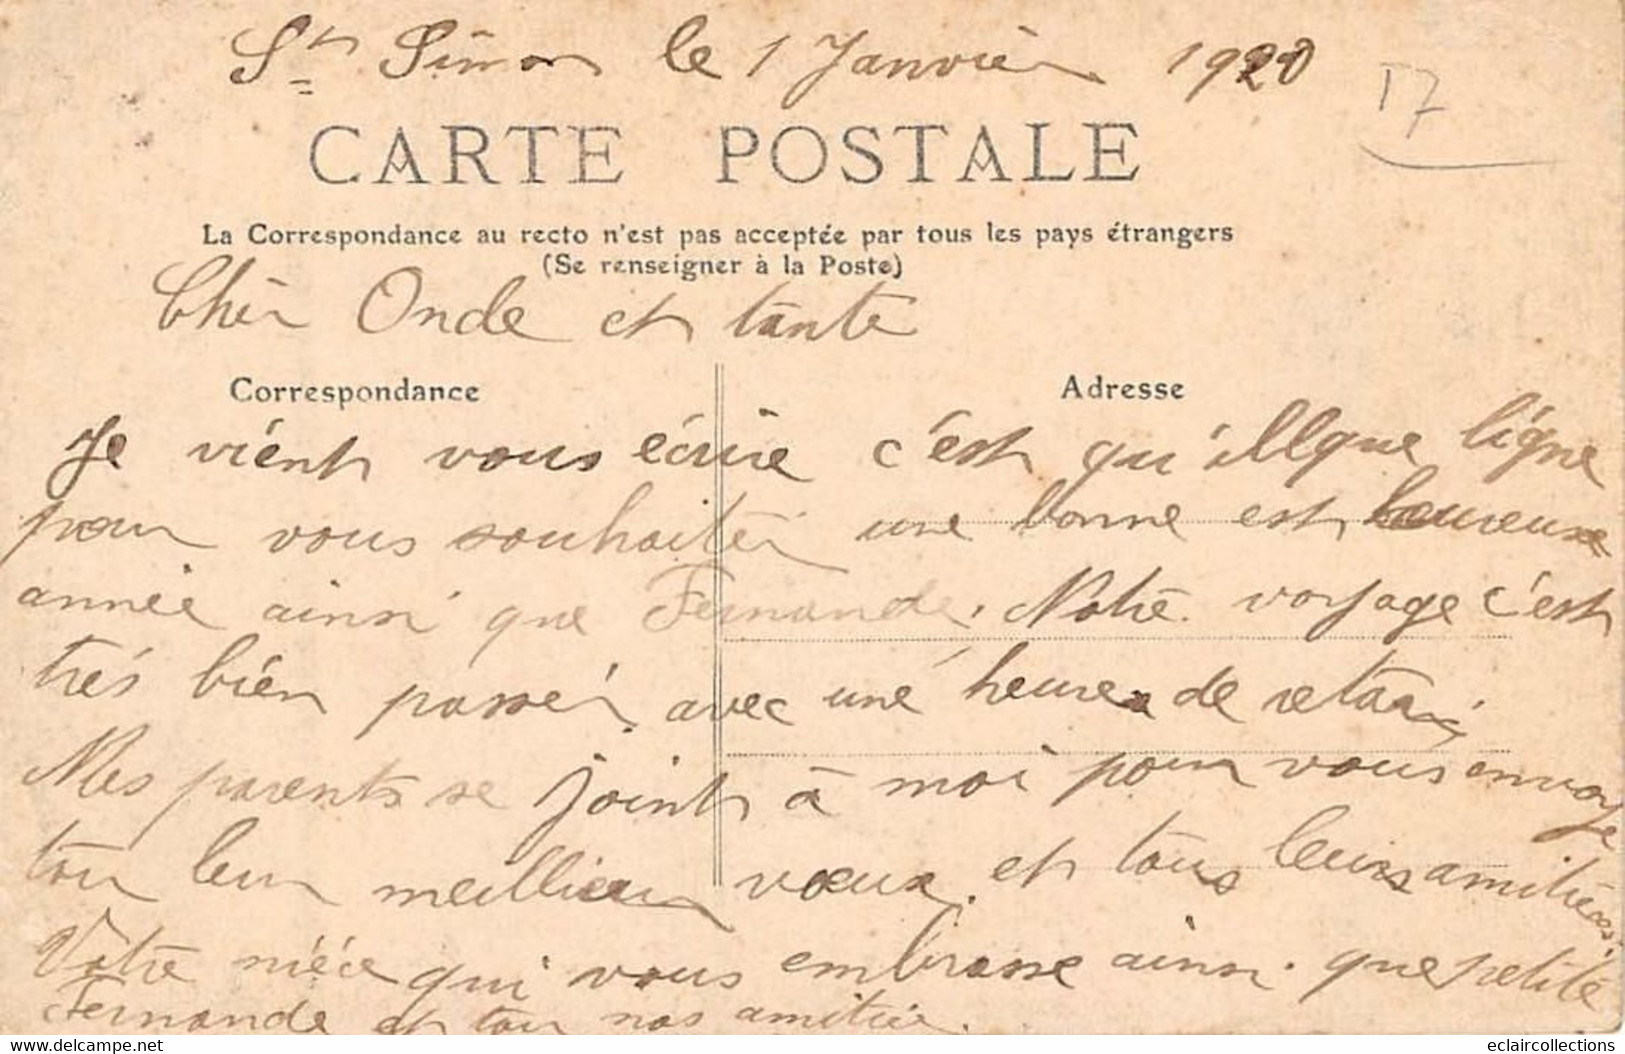 St Simon le 1 Janvier 1920
17
CARTE POSTALE
La Correspondance au recto n'est pas acceptée par tous les pays étrangers
(Se renseigner à la Poste)
Chèr Oncle et tante
Correspondance
Adresse
Je vient vous écrire c'est qu'illque ligne
pour vous souhaiter une bonne est heureuse
année ainsi que Fernande. Notre voyage c'est
trés bien passér avec une heure de retard
Mes parents se joint à moi pour vous envoye
tou leur meillieur vœux et tous leurs amitiées
Votre niéce qui vous embrasse ainsi que petite
Fernande et tou nos amitiée.
delcampe.net
eclaircollections